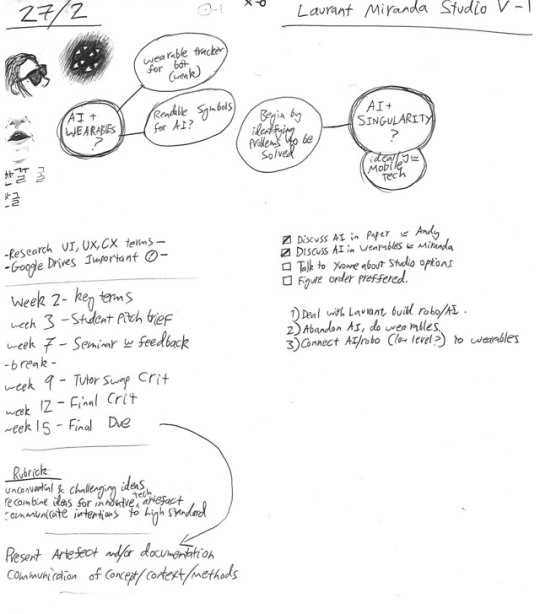 27/2
Laurant Miranda Studio V-1
x-o
wearable tracker
for bot
(wink)
AI +
WEARABLES
?
Readable Symbols
for AI?
Begin by
identifying
problems to be
solved
AI+
SINGULARITY
?
ideally
Mobile
Tech
한글
한글
-Research UI, UX, CX terms-
-Google Drives Important
Discuss AI in Paper w Andy
DISCUSS AI in wearables w Miranda
Talk to Yvonne about Studio options
Figure order preffered.
Week 2- key terms
week 3 - Student Pitch brief
week 7 - Seminar w feedback
-break-
week 9 - Tutor Swap Crit
week 12 - Final Crit
week 15 - Final Due
1) Deal with Laurant build robo/AI.
2) Abandon AI, do wearables.
3) Connect AI/robo (low level?) to wearables
Rubrick
unconvential & challenging ideas
recombine ideas for innovative tech artefact
communicate intentions to high standard
Present Artefact and/or documentation
Communication of concept/context/methods